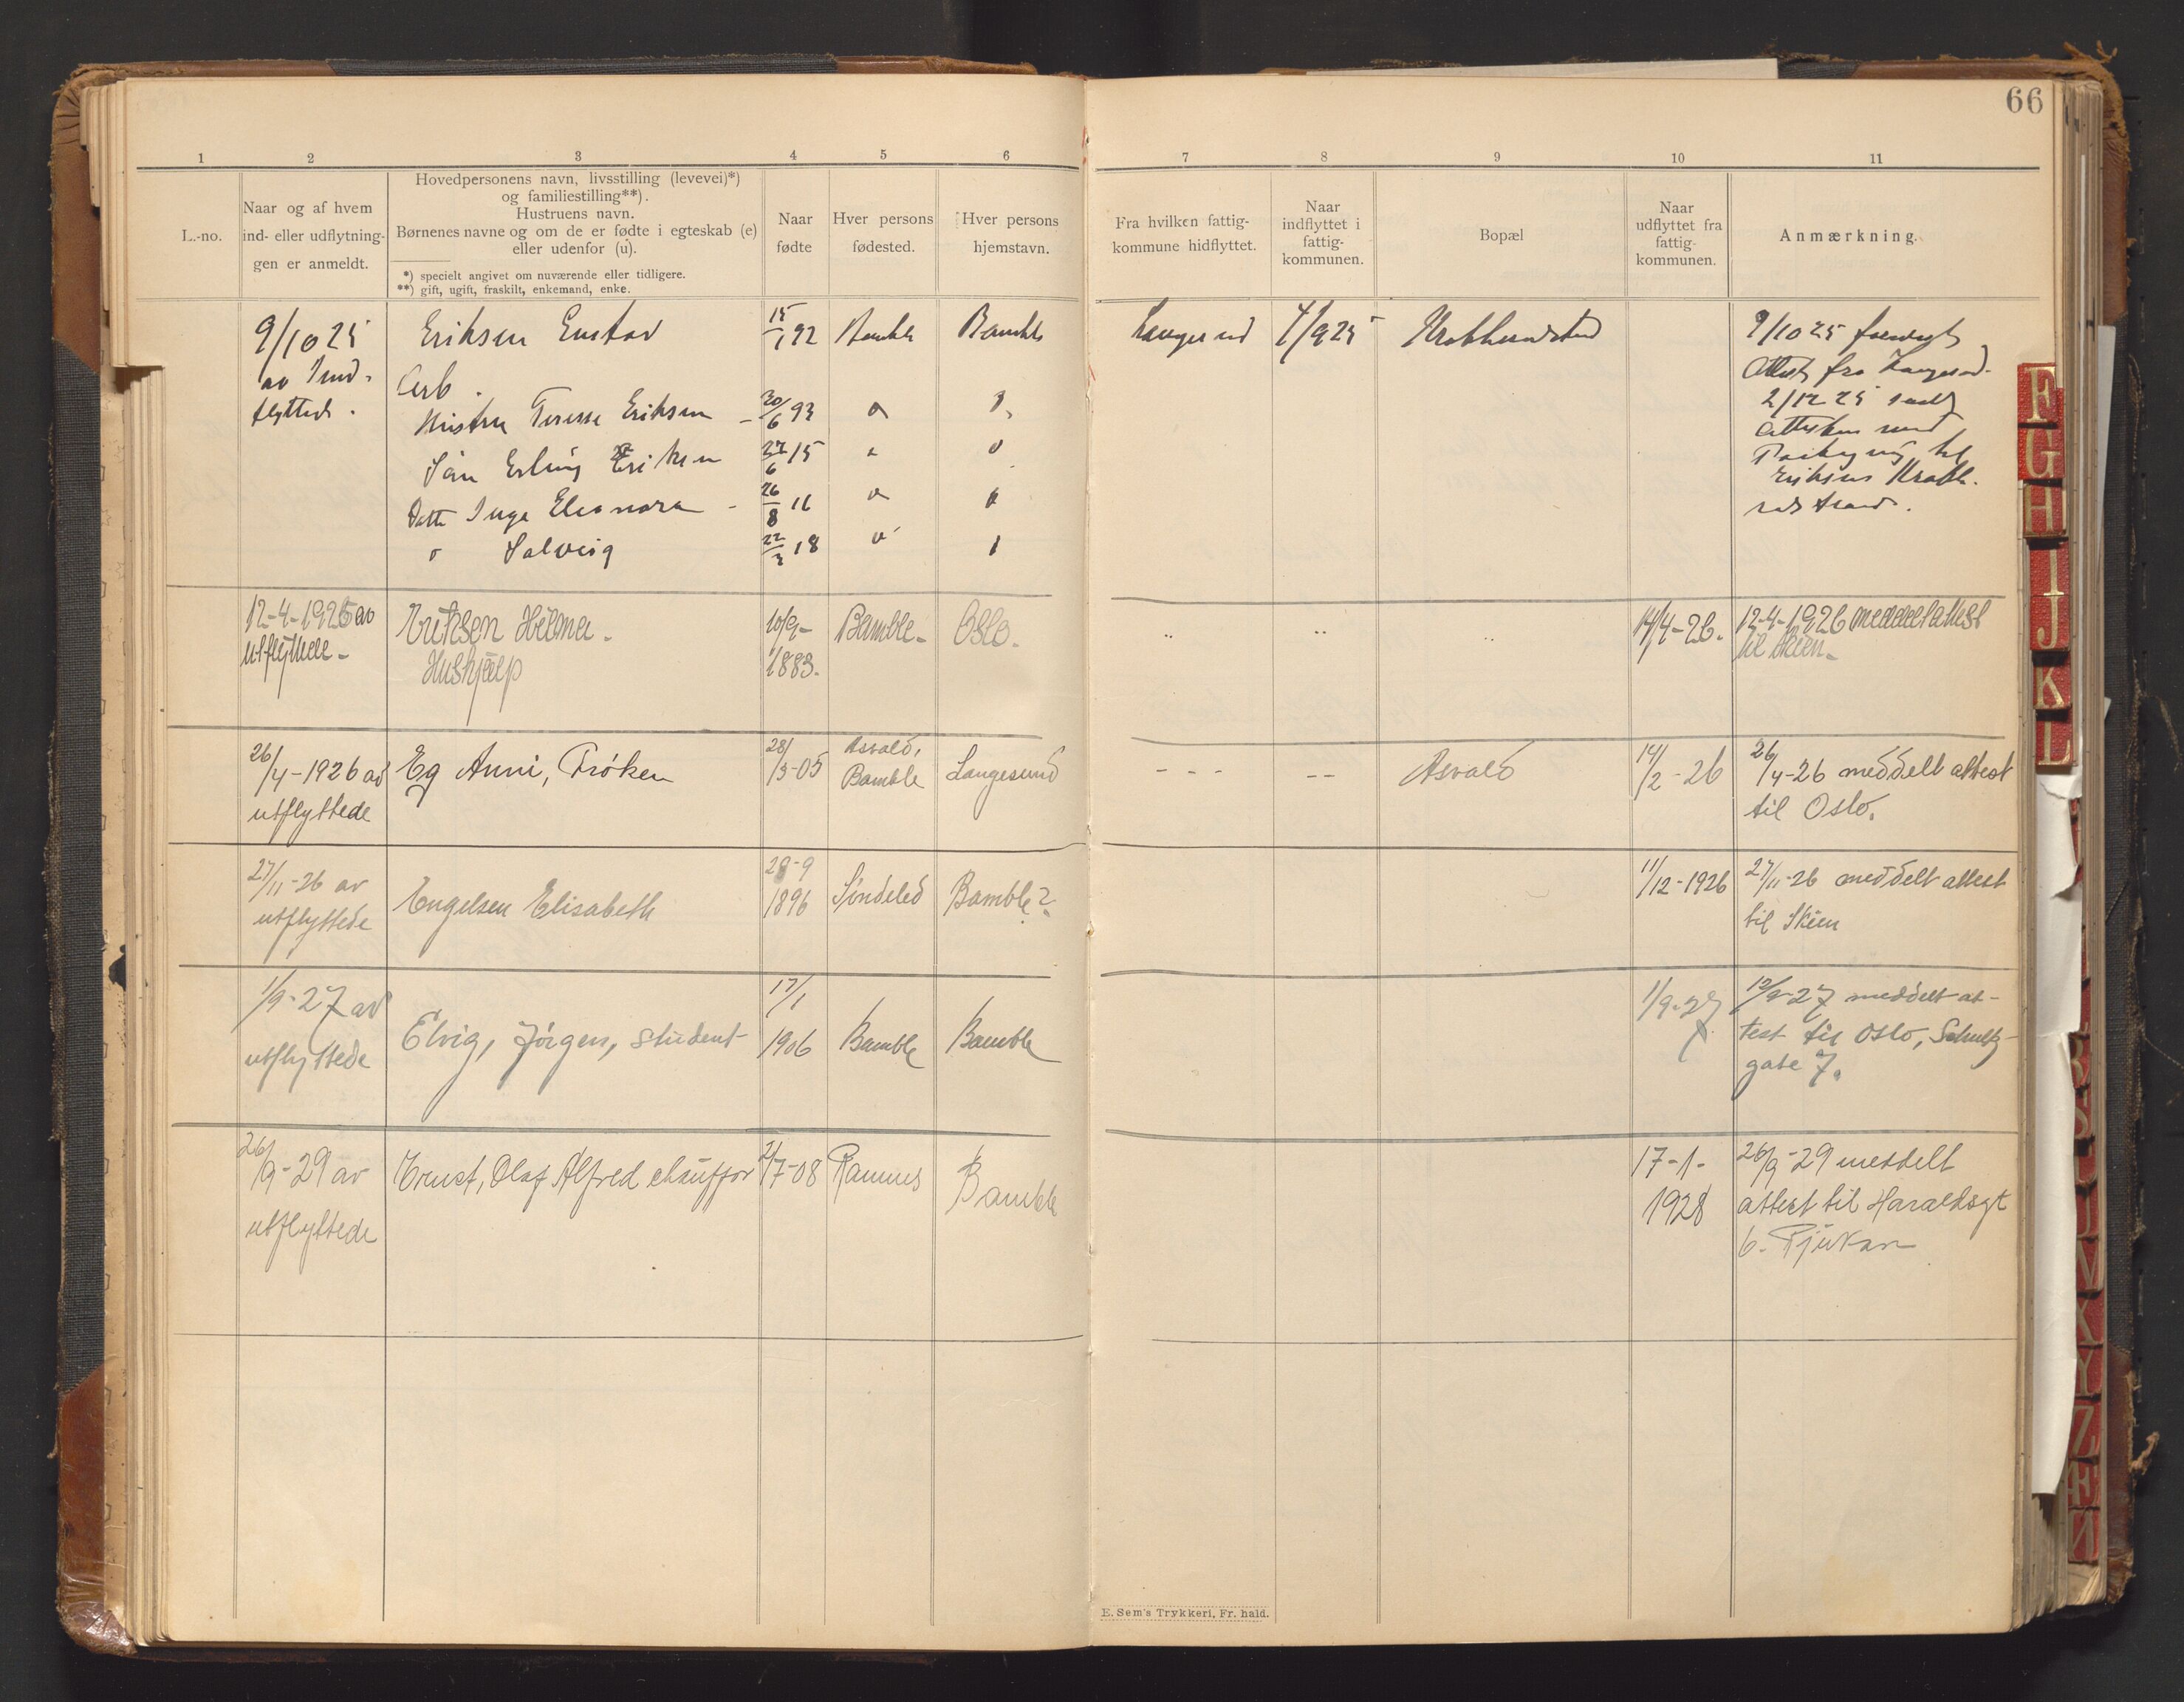 66
1 2 3 4 5 6 7 8 9 10 11
L.-no.
Naar og af hvem
ind- eller udflytning-
gen er anmeldt.
Hovedpersonens navn, livsstilling (levevei)*)
og familiestilling**).
Hustruens navn.
Børnenes navne og om de er fødte i egteskab (e)
eller udenfor (u).
*) specielt angivet om nuværende eller tidligere.
**) gift, ugift, fraskilt, enkemand, enke.
Naar
fødte
Hver persons
fødested.
Hver persons
hjemstavn.
Fra hvilken fattig-
kommune hidflyttet.
Naar
indflyttet i
fattig-
kommunen.
Bopæl
Naar
udflyttet fra
fattig-
kommunen.
Anmærkning.
9/10 25
av Ind-
flyttede.
Eriksen Gustav
Arb.
Hustru Terese Eriksen
Søn Erling Eriksen
Datter Inga Eleonora
" Solveig
15/1 92 Bamble Bamble
30/6 93 " "
27/6 15 " "
26/8 16 " "
22/3 18 " "
Langesund 1/9 25
9/10 25 forelagt
Attest fra Langesund.
2/12 25 sendt
Attesten med
til
Eriksen
12-4-1926 av
utflyttede -
Eriksen Helma.
Hushjælp
10/9-
1883.
Bamble - Oslo.
" " "
14/4-26.
12-4-1926 meddelt attest
til Skien.
26/4-1926 av
utflyttede
Eg Anni, Frøken
28/3-05
Asvald,
Bamble
Langesund
- - - - - Asvald
14/2-26
26/4-26 meddelt attest
til Oslo.
27/11-26 av
utflyttede
Engelsen Elisabeth
28-9
1896
Søndeled Bamble?
11/12-1926
27/11-26 meddelt attest
til Skien
1/9-27 av
utflyttede
Elvig, Jørgen, student
17/1
1906
Bamble Bamble
1/9-27
12/9-27 meddelt at-
test til Oslo, Schultz-
gate 7.
26/9-29 av
utflyttede
Ernst, Olaf Alfred chauffør
2/7-08 Ramnes
Bamble
17-1-
1928
26/9-29 meddelt
attest til Haraldsgt
6. Rjukan
E. Sem's Trykkeri, Fr. hald.
F
G
H
I
J
K
L
V
K
Y
Z
Æ
Ø